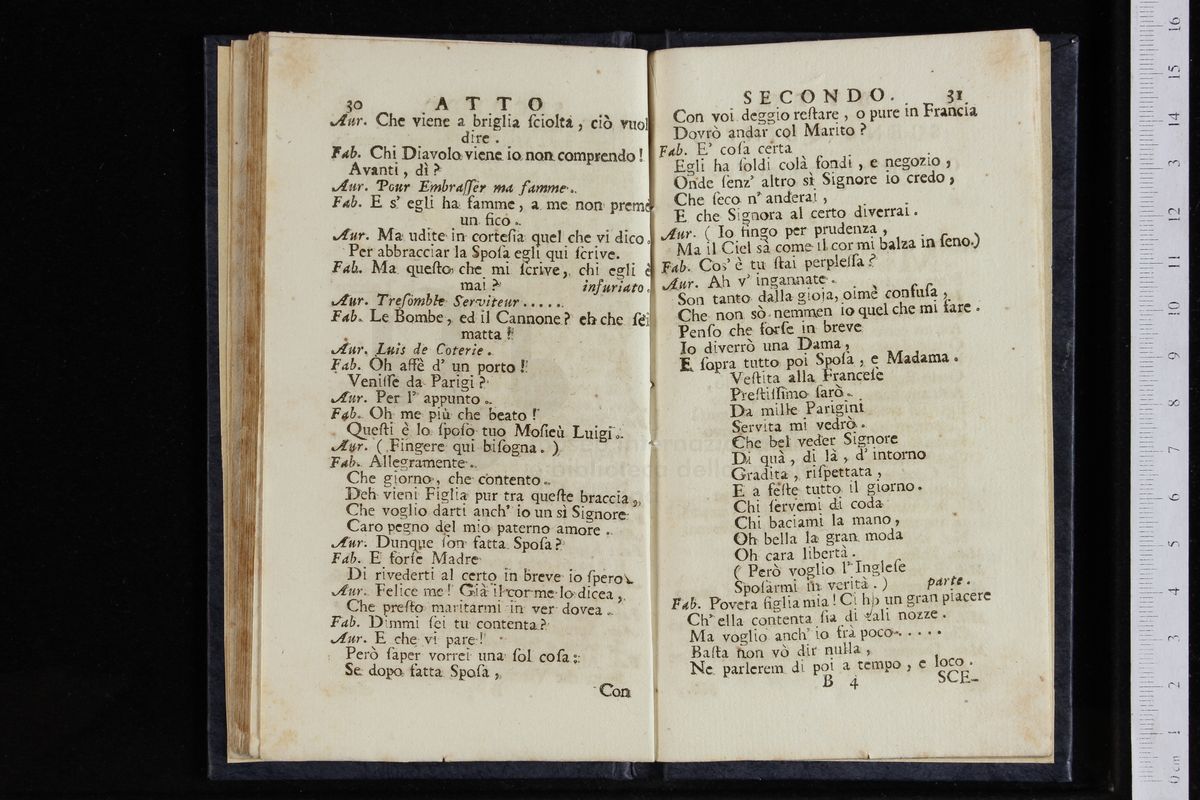 30 ATTO
Aur. Che viene a briglia ſciolta, ciò vuol
dire.
Fab. Chi Diavolo viene io non comprendo!
Avanti, dì?
Aur. Pour Embraſſer ma famme.
Fab. E s' egli ha famme, a me non preme
un fico.
Aur. Ma udite in corteſia quel che vi dico.
Per abbracciar la Spoſa egli qui ſcrive.
Fab. Ma queſto che mi ſcrive, chi egli è
mai? infuriato.
Aur. Treſomble Serviteur.....
Fab. Le Bombe, ed il Cannone? eh che ſei
matta!
Aur. Luis de Coterie.
Fab. Oh affè d' un porto!
Veniſſe da Parigi?
Aur. Per l' appunto.
Fab. Oh me più che beato!
Queſti è lo ſpoſo tuo Moſieù Luigi.
Aur. (Fingere qui biſogna.)
Fab. Allegramente.
Che giorno, che contento.
Deh vieni Figlia pur tra queſte braccia,
Che voglio darti anch' io un sì Signore
Caro pegno del mio paterno amore.
Aur. Dunque ſon fatta Spoſa?
Fab. E forſe Madre
Di rivederti al certo in breve io ſpero.
Aur. Felice me! Già il cor me lo dicea,
Che preſto maritarmi in ver dovea.
Fab. Dimmi ſei tu contenta?
Aur. E che vi pare!
Però ſaper vorrei una ſol coſa:
Se dopo fatta Spoſa,
Con
SECONDO. 31
Con voi deggio reſtare, o pure in Francia
Dovrò andar col Marito?
Fab. E' coſa certa
Egli ha ſoldi colà fondi, e negozio,
Onde ſenz' altro sì Signore io credo,
Che ſeco n' anderai,
E che Signora al certo diverrai.
Aur. (Io fingo per prudenza,
Ma il Ciel sà come il cor mi balza in ſeno.)
Fab. Cos' è tu ſtai perpleſſa?
Aur. Ah v' ingannate.
Son tanto dalla gioia, oimè confuſa,
Che non sò nemmen io quel che mi fare.
Penſo che forſe in breve
Io diverrò una Dama,
E ſopra tutto poi Spoſa, e Madama.
Veſtita alla Franceſe
Preſtiſſimo ſarò.
Da mille Parigini
Servita mi vedrò.
Che bel veder Signore
Di quà, di là, d' intorno
Gradita, riſpettata,
E a feſte tutto il giorno.
Chi ſervemi di coda
Chi baciami la mano,
Oh bella la gran moda
Oh cara libertà.
(Però voglio l' Ingleſe
Spoſarmi in verità.) parte.
Fab. Povera figlia mia! Ci ho un gran piacere
Ch' ella contenta ſia di tali nozze.
Ma voglio anch' io frà poco.....
Baſta non vò dir nulla,
Ne parlerem di poi a tempo, e loco.
B 4 SCE-